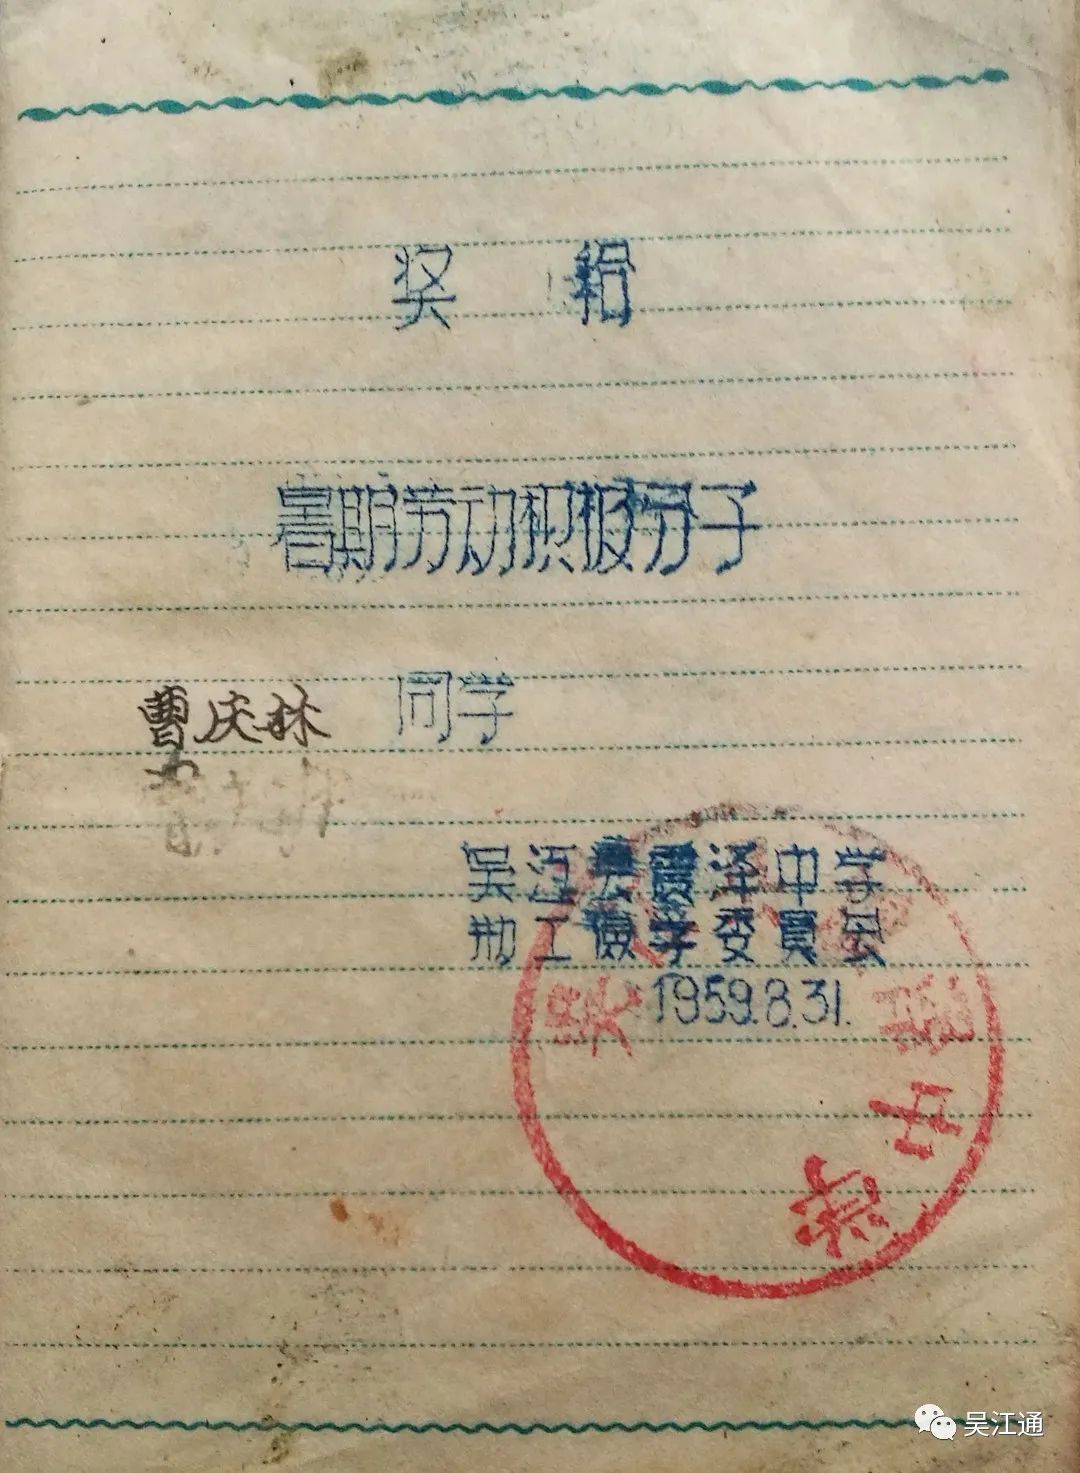 奖给
暑期劳动积极分子
曹庆林 同学
吴江县震泽中学
勤工俭学委員会
1959.8.31.
吴江通